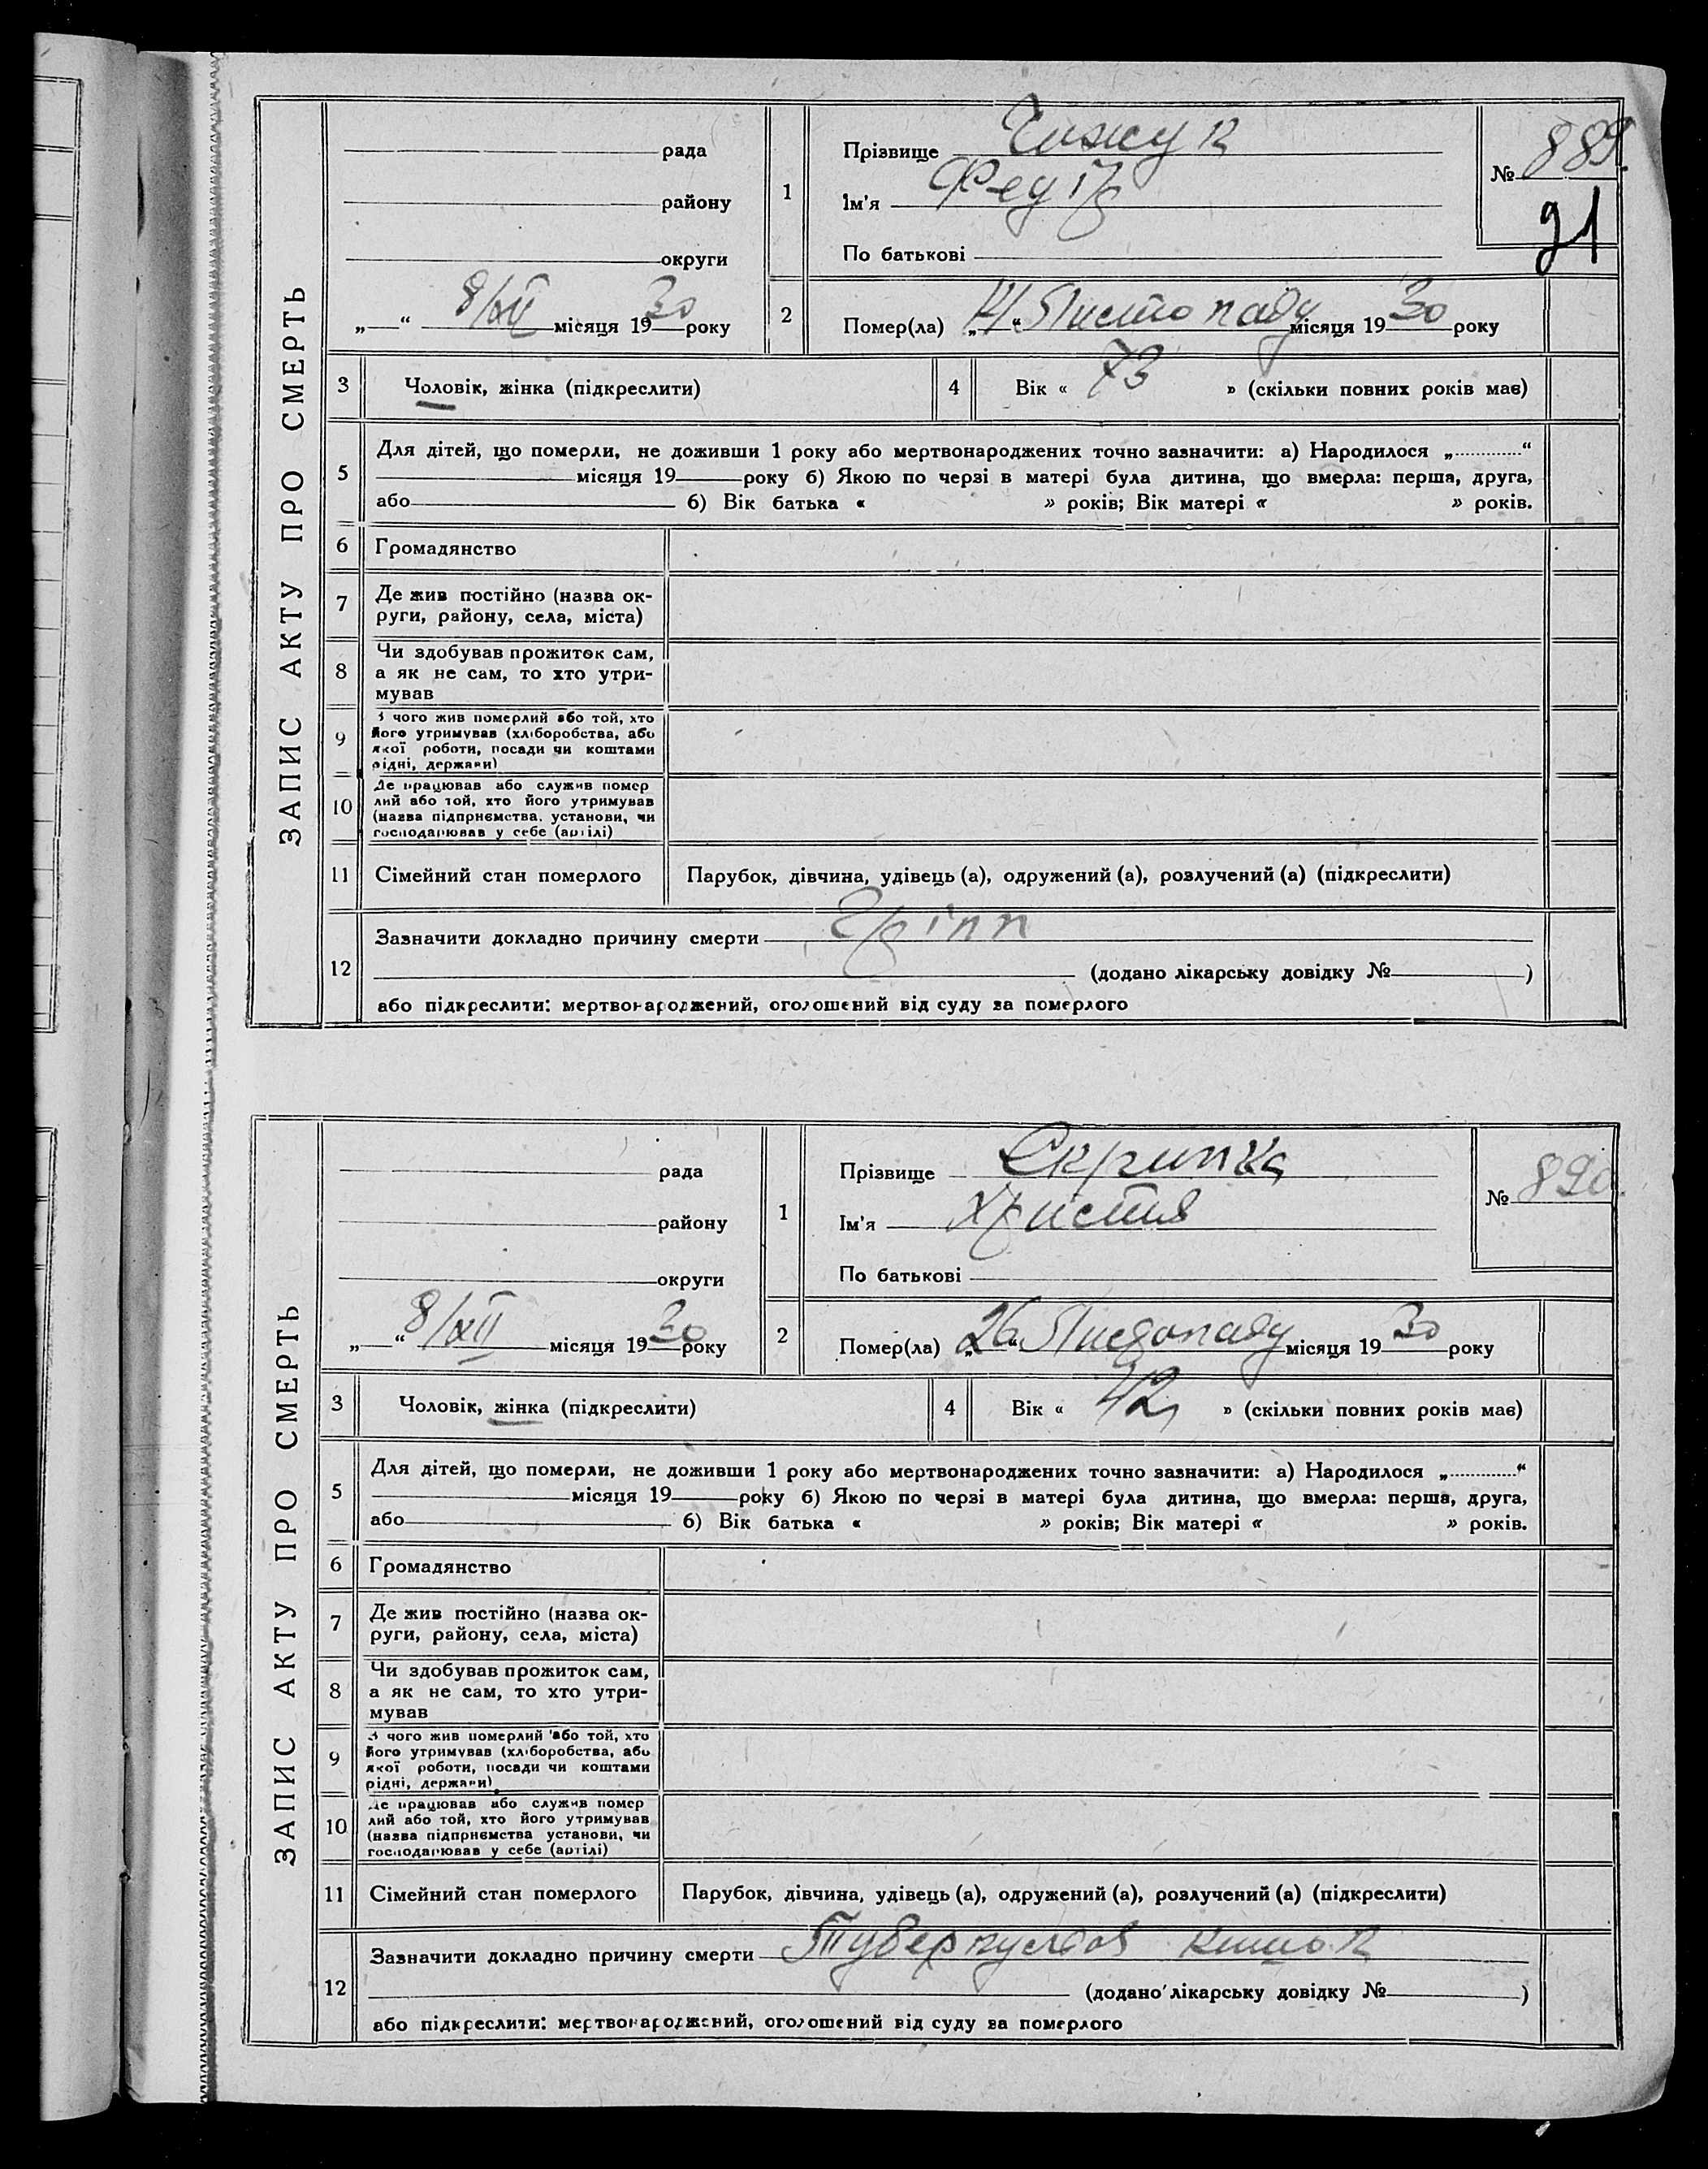 ЗАПИС АКТУ ПРО СМЕРТЬ
рада
району
округи
„ “ 8/XII місяця 1930 року
1
Прізвище Чижук
Ім'я Федір
По батькові
№ 889
91
2
Помер(ла) „14“ Листопаду місяця 1930 року
3 Чоловік, жінка (підкреслити)
4 Вік « 73 » (скільки повних років має)
5
Для дітей, що померли, не доживши 1 року або мертвонароджених точно зазначити: а) Народилося „ “
місяця 19 року б) Якою по черзі в матері була дитина, що вмерла: перша, друга,
або б) Вік батька « » років; Вік матері « » років.
6 Громадянство
7
Де жив постійно (назва ок-
руги, району, села, міста)
8
Чи здобував прожиток сам,
а як не сам, то хто утри-
мував
9
З чого жив померлий або той, хто
його утримував (хліборобства, або
якої роботи, посади чи коштами
рідні, держави)
10
Де працював або служив помер
лий або той, хто його утримував
(назва підприємства. установи, чи
господарював у себе (артілі)
11 Сімейний стан померлого Парубок, дівчина, удівець (а), одружений (а), розлучений (а) (підкреслити)
12
Зазначити докладно причину смерти Грiпп
(додано лікарську довідку № )
або підкреслити: мертвонароджений, оголошений від суду за померлого
ЗАПИС АКТУ ПРО СМЕРТЬ
рада
району
округи
„ “ 8/XII місяця 1930 року
1
Прізвище Скрипка
Ім'я Христия
По батькові
№ 890
2
Помер(ла) „26“ Листопаду місяця 1930 року
3 Чоловік, жінка (підкреслити)
4 Вік « 42 » (скільки повних років має)
5
Для дітей, що померли, не доживши 1 року або мертвонароджених точно зазначити: а) Народилося „ “
місяця 19 року б) Якою по черзі в матері була дитина, що вмерла: перша, друга,
або б) Вік батька « » років; Вік матері « » років.
6 Громадянство
7
Де жив постійно (назва ок-
руги, району, села, міста)
8
Чи здобував прожиток сам,
а як не сам, то хто утри-
мував
9
З чого жив померлий або той, хто
його утримував (хліборобства, або
якої роботи, посади чи коштами
рідні, держави)
10
Де працював або служив помер
лий або той, хто його утримував
(назва підприємства установи, чи
господарював у себе (артілі)
11 Сімейний стан померлого Парубок, дівчина, удівець (а), одружений (а), розлучений (а) (підкреслити)
12
Зазначити докладно причину смерти Туберкульоз кишок
(додано лікарську довідку № )
або підкреслити: мертвонароджений, оголошений від суду за померлого